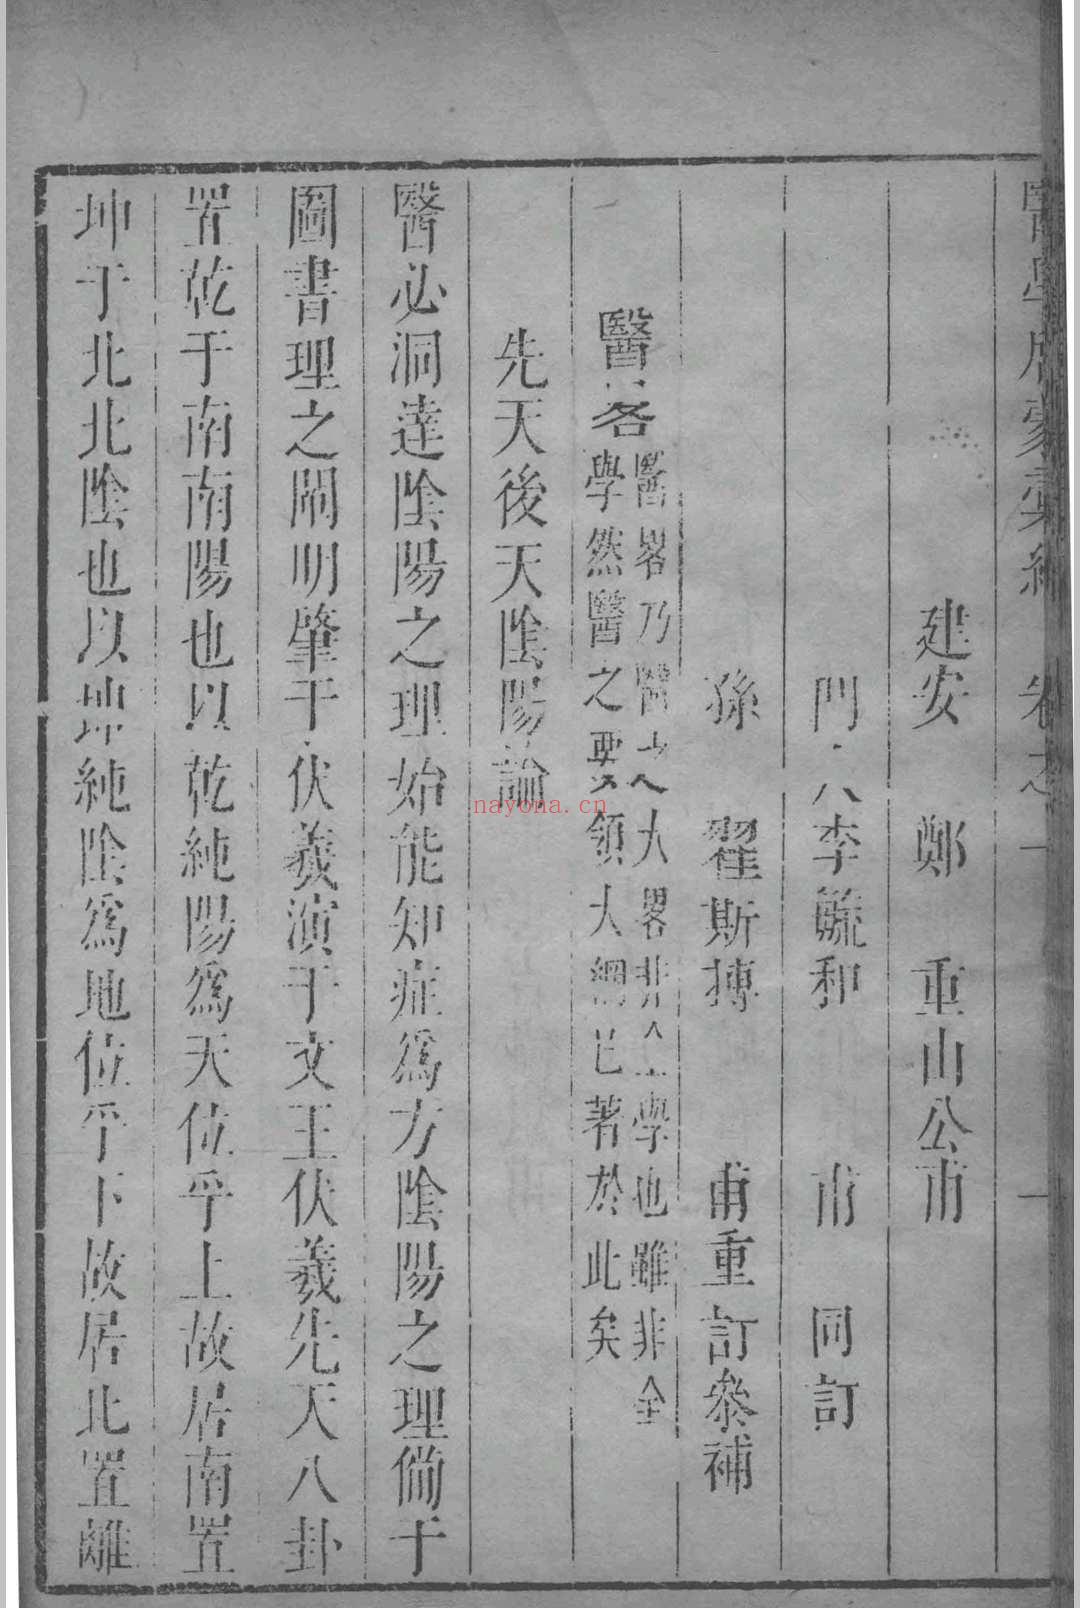 醫學啟蒙彙編 卷之一 一
建安 鄭 重山公甫
門人李毓和 甫 同訂
孫 翟斯摶 甫重訂參補
醫畧 醫畧乃醫之大畧非全學也雖非全
學然醫之要領大綱已著於此矣
先天後天陰陽論
醫必洞達陰陽之理始能知症為方陰陽之理備于
圖書理之闡明肇于伏羲演于文王伏羲先天八卦
置乾于南南陽也以乾純陽為天位乎上故居南置
坤于北北陰也以坤純陰為地位乎下故居北置離
nayona.cn